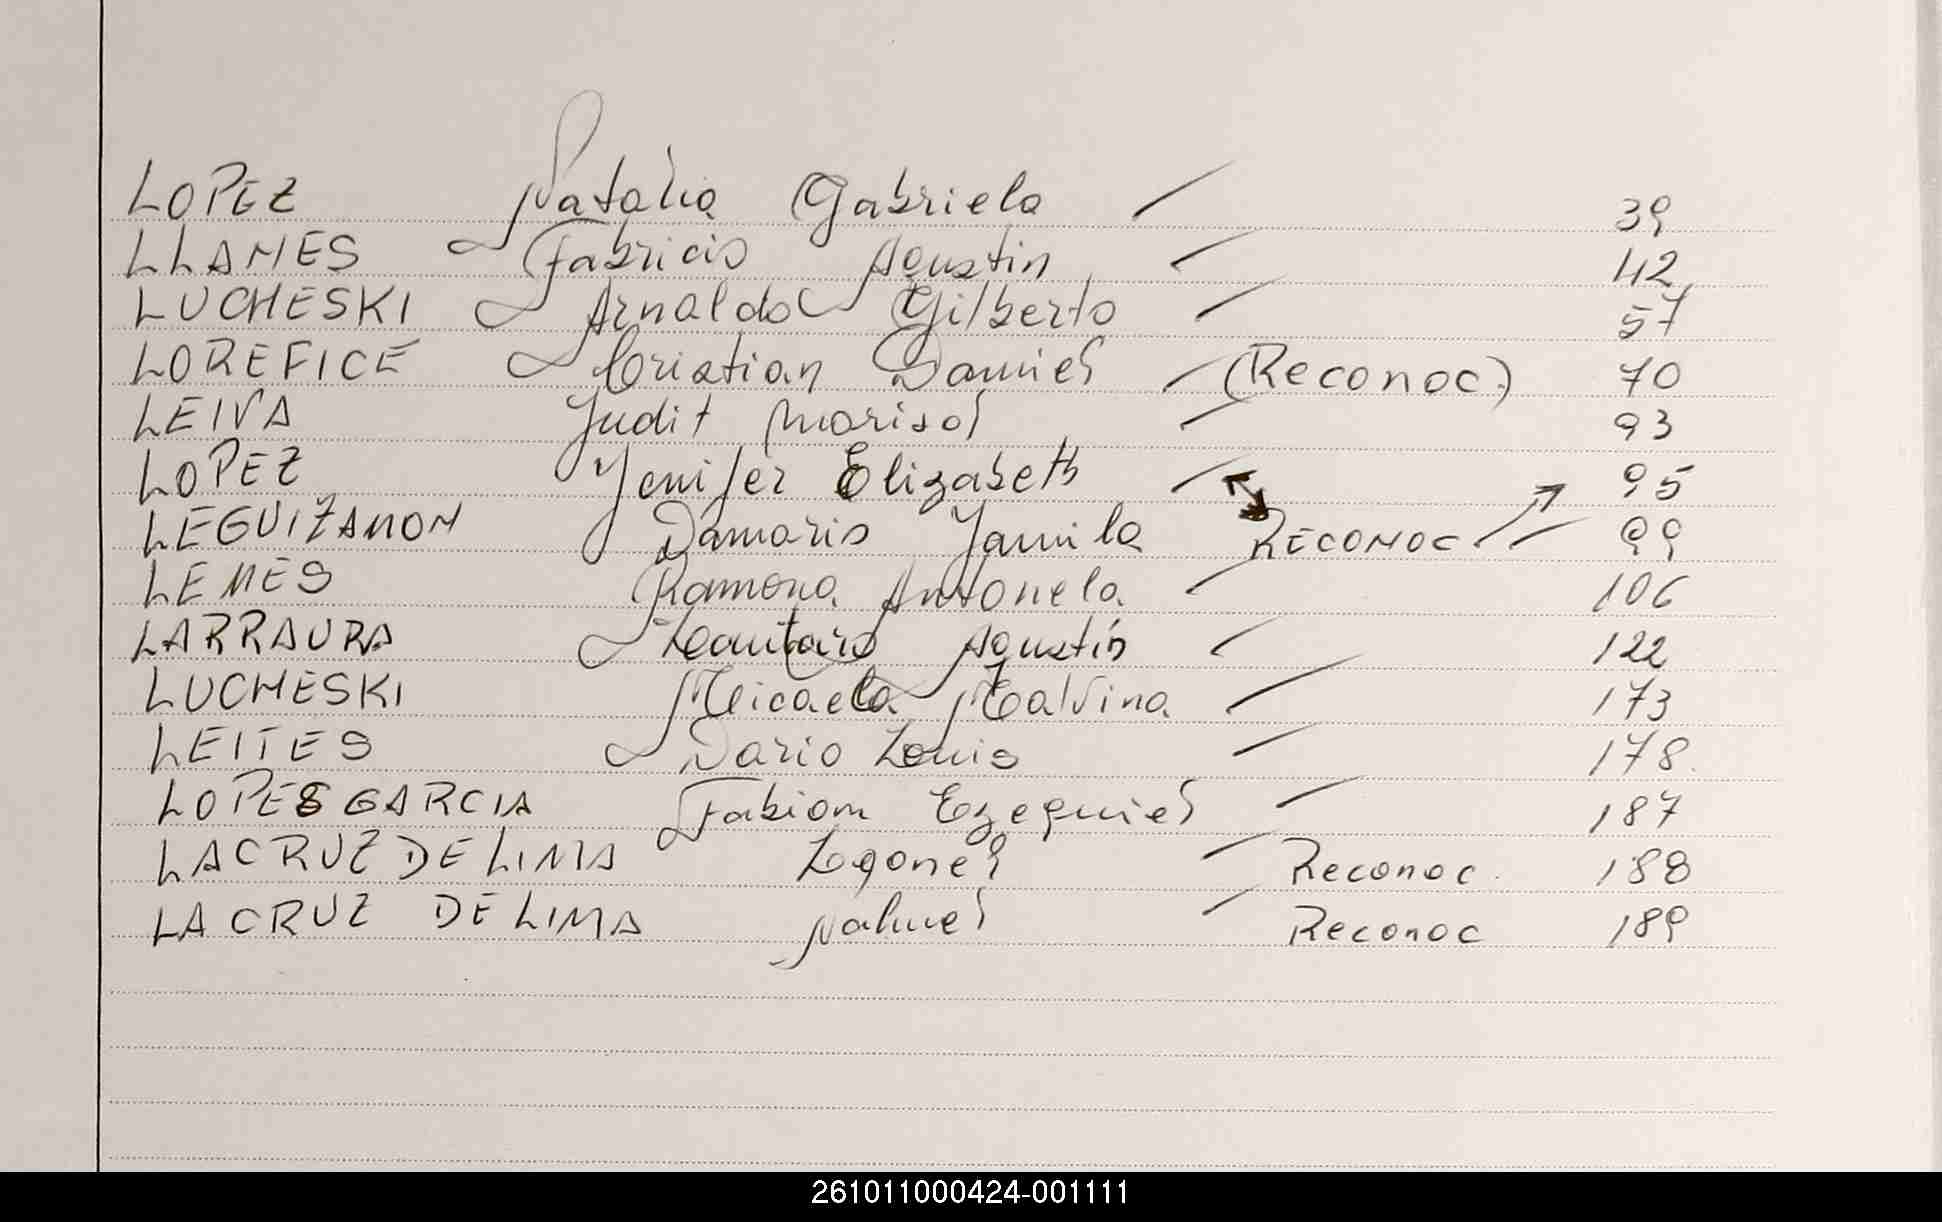 LOPEZ Natalia Gabriela 39
LLAMES Fabricio Agustin 42
LUCHESKI Arnaldo Gilberto 57
LOREFICE Cristian Daniel (Reconoc.) 70
LEIVA Judit Marisol 93
LOPEZ Yenifer Elizabeth 95
LEGUIZAMON Damaris Yamila RECONOC 99
LEMES Ramona Antonela 106
LARRAURA Lautaro Agustín 122
LUCHESKI Micaela Malvina 173
LEITES Dario Louis 178
LOPES GARCIA Fabian Ezequiel 187
LACRUZ DE LIMA Leonel Reconoc. 188
LA CRUZ DE LIMA Nahuel Reconoc 189
261011000424-001111